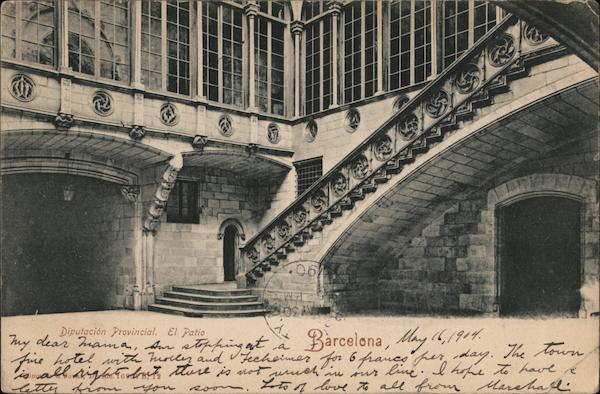 Diputación Provincial. El Patio
Barcelona, May 16, 1904.
My dear Mama, Am stopping at a
fine hotel with Moller and Fecheimer for 6 francs per day. The town
is all right but there is not much in our line. I hope to have a
letter from you soon. Lots of love to all from Marshall.